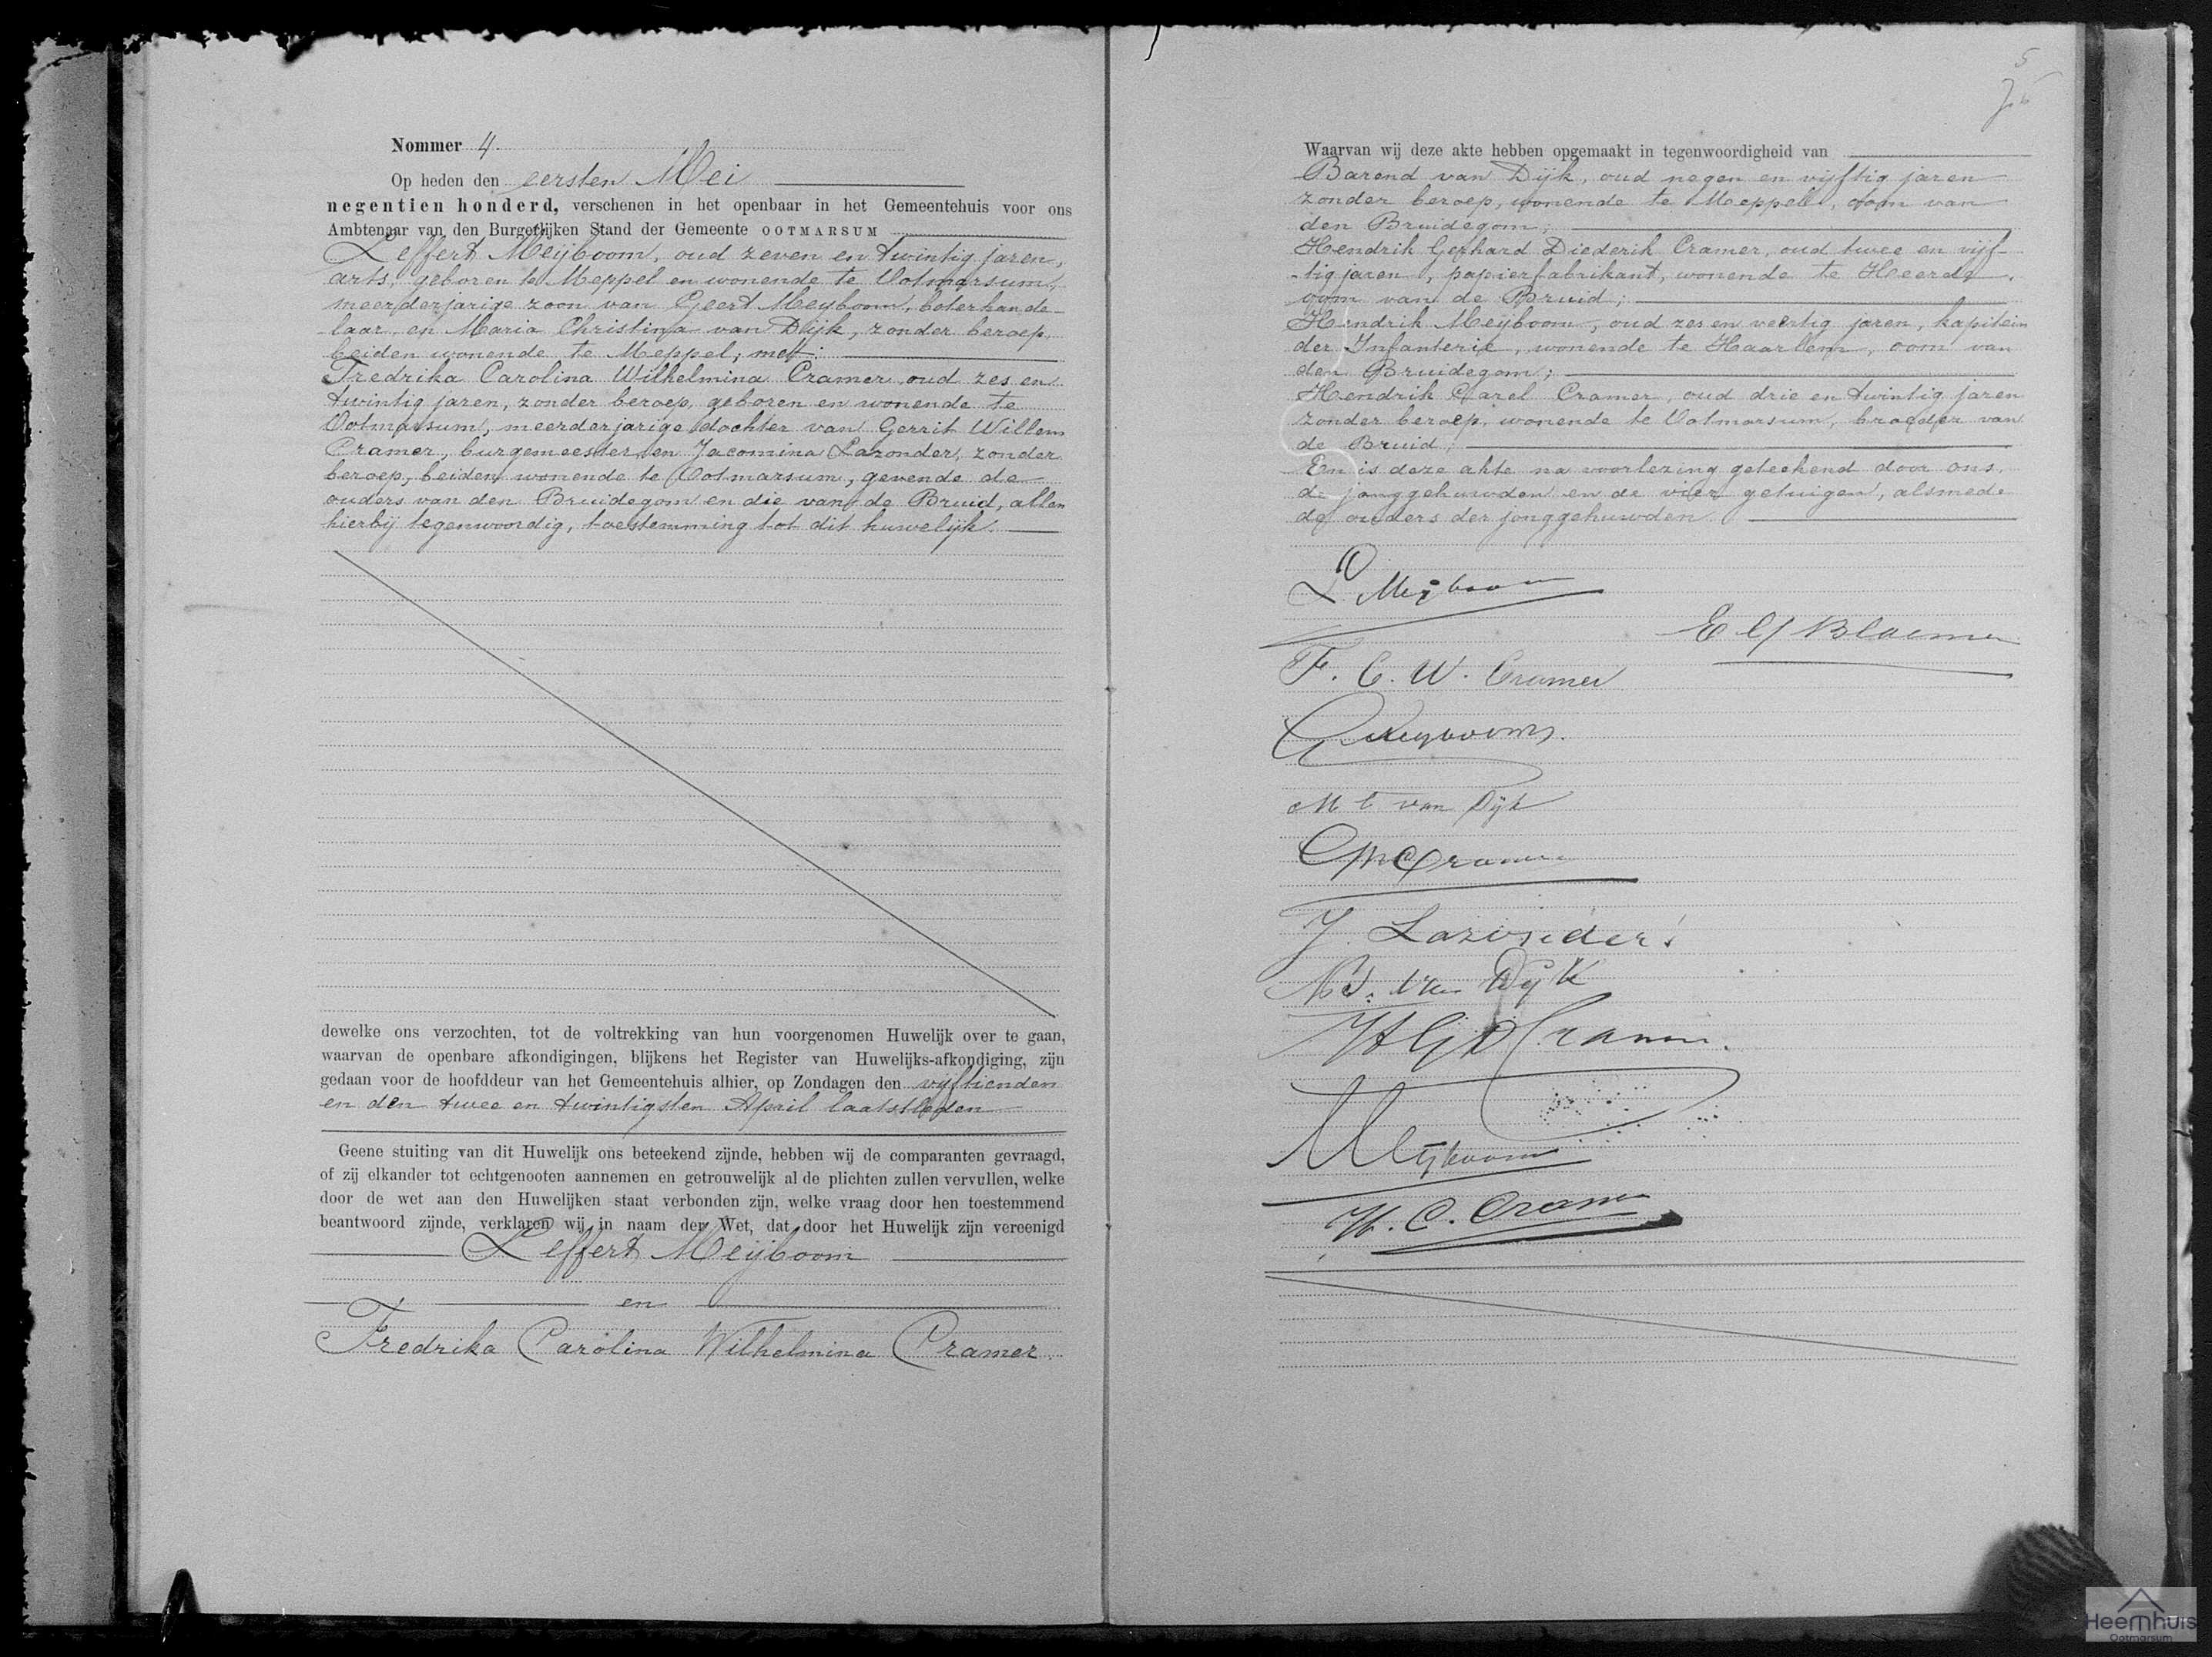 Nommer 4.
Op heden den eersten Mei
negentien honderd, verschenen in het openbaar in het Gemeentehuis voor ons
Ambtenaar van den Burgerlijken Stand der Gemeente OOTMARSUM
Leffert Meijboom, oud zeven en twintig jaren,
arts, geboren te Meppel en wonende te Ootmarsum,
meerderjarige zoon van Geert Meijboom, boterhande-
laar, en Maria Christina van Dijk, zonder beroep,
beiden wonende te Meppel; met:
Fredrika Carolina Wilhelmina Cramer, oud zes en
twintig jaren, zonder beroep, geboren en wonende te
Ootmarsum, meerderjarige dochter van Gerrit Willem
Cramer, burgemeester, en Jacomina Lazonder, zonder
beroep, beiden wonende te Ootmarsum, gevende de
ouders van den Bruidegom en die van de Bruid, allen
hierbij tegenwoordig, toestemming tot dit huwelijk.
dewelke ons verzochten, tot de voltrekking van hun voorgenomen Huwelijk over te gaan,
waarvan de openbare afkondigingen, blijkens het Register van Huwelijks-afkondiging, zijn
gedaan voor de hoofddeur van het Gemeentehuis alhier, op Zondagen den vijftienden
en den twee en twintigsten April laatstleden
Geene stuiting van dit Huwelijk ons beteekend zijnde, hebben wij de comparanten gevraagd,
of zij elkander tot echtgenooten aannemen en getrouwelijk al de plichten zullen vervullen, welke
door de wet aan den Huwelijken staat verbonden zijn, welke vraag door hen toestemmend
beantwoord zijnde, verklaren wij in naam der Wet, dat door het Huwelijk zijn vereenigd
Leffert Meijboom
en
Fredrika Carolina Wilhelmina Cramer.
5
Waarvan wij deze akte hebben opgemaakt in tegenwoordigheid van
Barend van Dijk, oud negen en vijftig jaren
zonder beroep, wonende te Meppel, oom van
den Bruidegom;
Hendrik Gerhard Diederik Cramer, oud twee en vijf-
-tig jaren, papierfabrikant, wonende te Heerde,
oom van de Bruid;
Hendrik Meijboom, oud zes en veertig jaren, kapitein
der Infanterie, wonende te Haarlem, oom van
den Bruidegom;
Hendrik Carel Cramer, oud drie en twintig jaren
zonder beroep, wonende te Ootmarsum, broeder van
de Bruid;
En is deze akte na voorlezing geteekend door ons,
de jonggehuwden en de vier getuigen, alsmede
de ouders der jonggehuwden.
L Meijboom
Bloemen
F. C. W. Cramer
G Meijboom
M C van Dijk
GW Cramer
J. Lazonder
Bd. van Dijk
H G D Cramer.
Meijboom
H. C. Cramer
Heemhuis
Ootmarsum